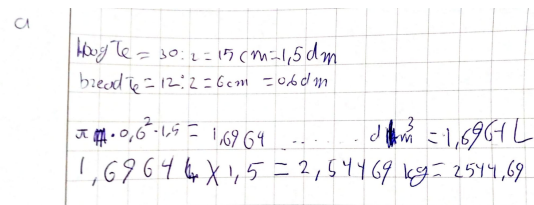 a
Hoogte = 30:2=15cm=1,5dm
breedte=12:2=6cm =0,6dm
π·0,6²·1,5= 1,6964 ....... dm³ =1,6964 L
1,6964 L X 1,5 = 2,54469 kg= 2544,69